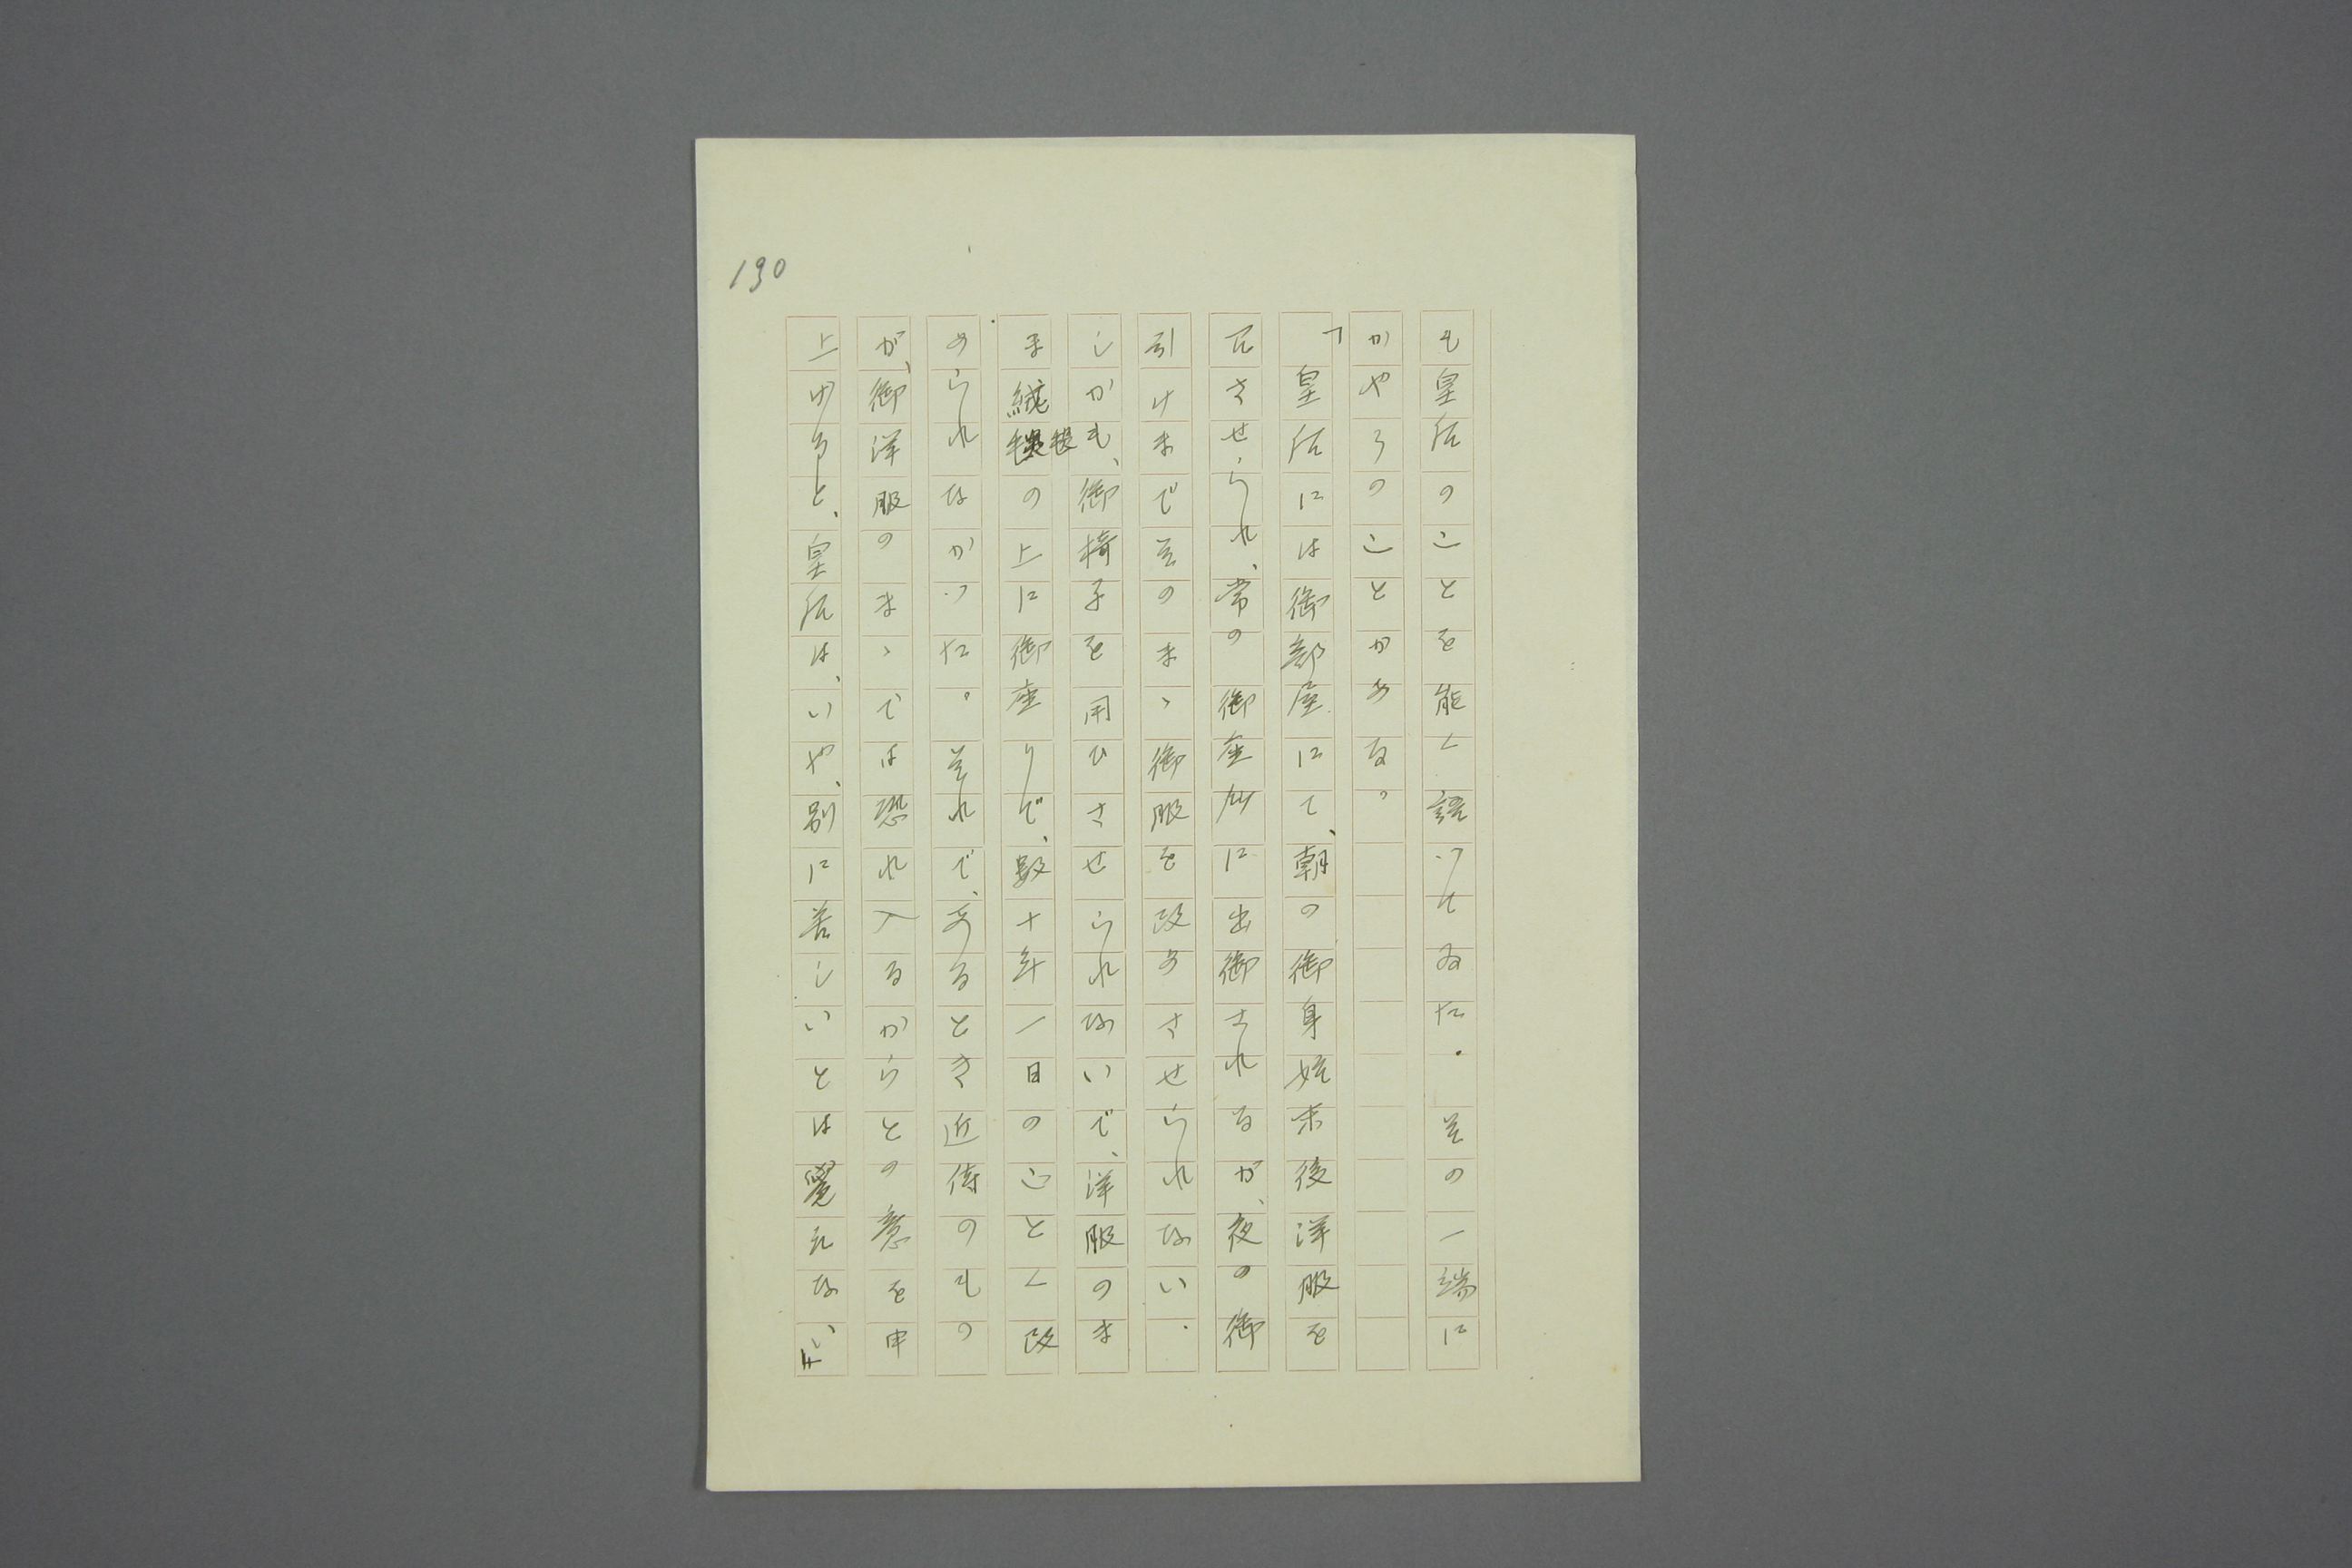 190
も皇后のことを能く語つてゐた。その一端に
かやうのことがある。
「皇后には御部屋にて、朝の御身始末後洋服を
召させられ、常の御座所に出御されるが、夜の御
引けまでそのまゝ御服を改めさせられない。
しかも、御椅子を用ひさせられないで、洋服のま
ま絨毯の上に御座りで、数十年一日のごとく改
められなかつた。それで、あるとき近侍のもの
が、御洋服のまゝでは恐れ入るからとの意を申
上げると、皇后は、いや、別に苦しいとは覺えない、